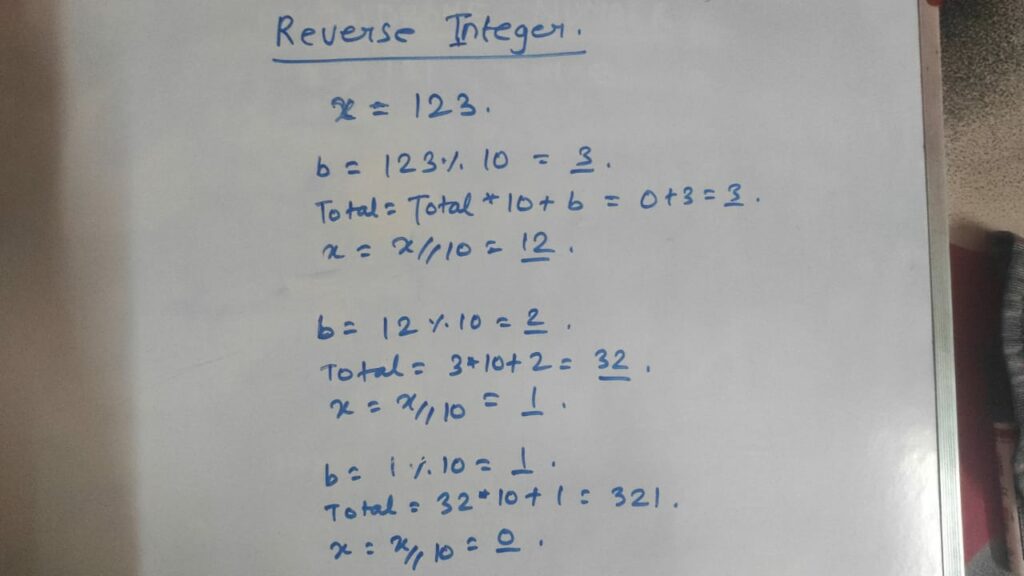 Reverse Integer.
x = 123.
b = 123 % 10 = 3.
Total = Total * 10 + b = 0+3 = 3.
x = x//10 = 12.
b = 12 % 10 = 2.
Total = 3*10+2 = 32.
x = x//10 = 1.
b = 1 % 10 = 1.
Total = 32*10+1 = 321.
x = x//10 = 0.